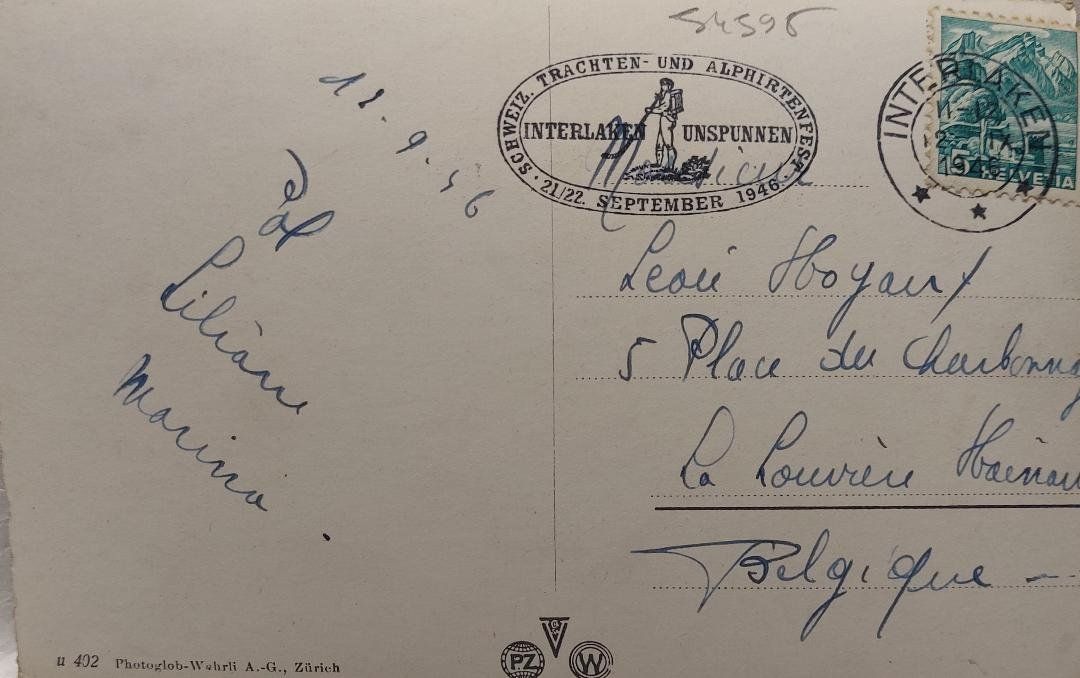 54595
SCHWEIZ. TRACHTEN- UND ALPHIRTENFEST
INTERLAKEN UNSPUNNEN
21/22. SEPTEMBER 1946
INTERLAKEN
1946
5 HELVETIA
9. 46
Liliane
Marina
Monsieur
Hoyaux
5 Place du Charbonnag
La Louvière Hainau
Belgique
u 402 Photoglob-Wehrli A.-G., Zürich
PZ W